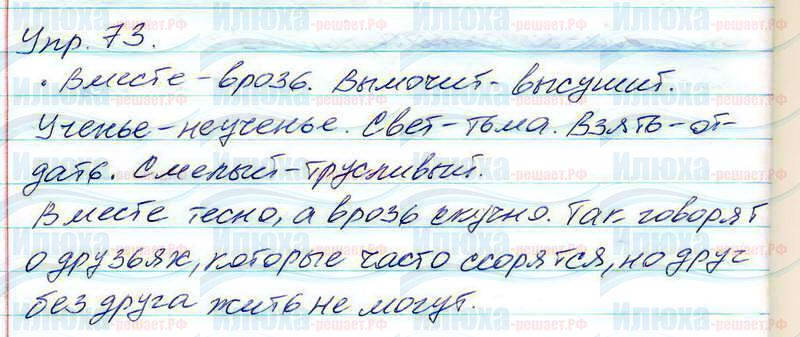 Упр. 73.
Вместе – врозь. Вымочит – высушит.
Ученье – неученье. Свет – тьма. Взять – от-
дать. Смелый – трусливый.
Вместе тесно, а врозь скучно. Так говорят
о друзьях, которые часто ссорятся, но друг
без друга жить не могут.